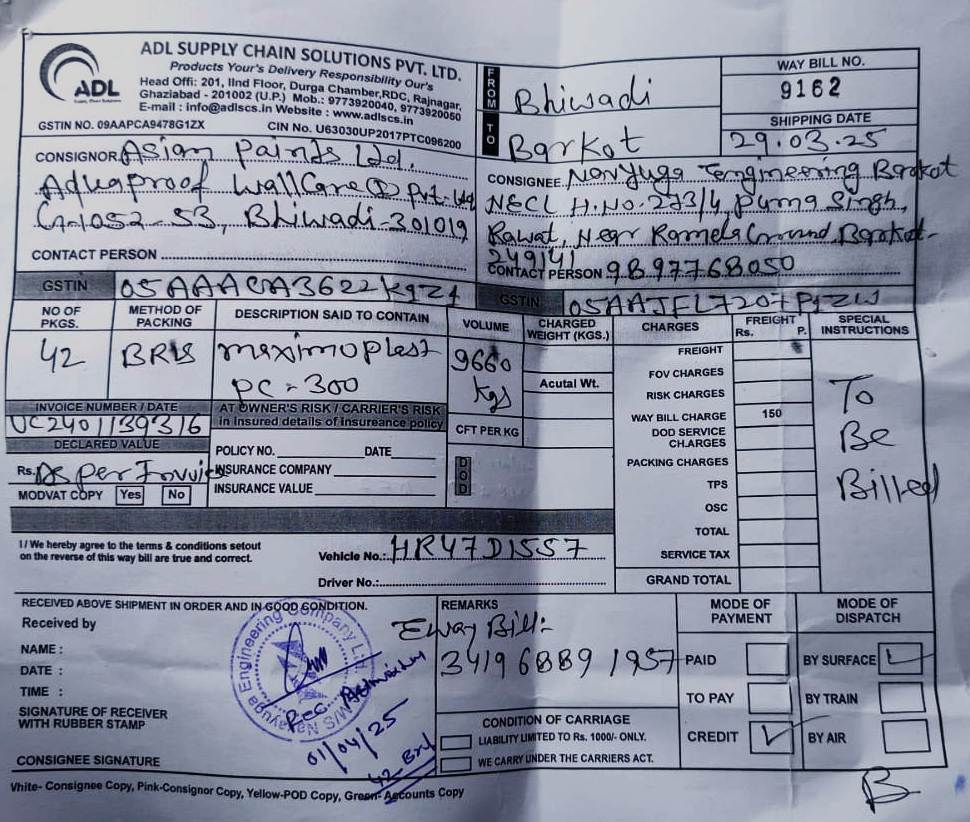 ADL SUPPLY CHAIN SOLUTIONS PVT. LTD.
Products Your's Delivery Responsibility Our's
Head Offi: 201, IInd Floor, Durga Chamber,RDC, Rajnagar,
Ghaziabad - 201002 (U.P.) Mob.: 9773920040, 9773920050
E-mail : info@adlscs.in Website : www.adlscs.in
GSTIN NO. 09AAPCA9478G1ZX CIN No. U63030UP2017PTC096200
ADL
FROM Bhiwadi
TO Barkot
WAY BILL NO.
9162
SHIPPING DATE
29.03.25
CONSIGNOR Asian Paints Ltd.
Aquaproof WallCare (P) Pvt. Ltd
Bhiwadi-301019
CONTACT PERSON
GSTIN
CONSIGNEE Navyuga Engineering Barkot
NECL H.No. 273/4, Singh,
Rawat, Near Ground, Barkot-
249141
CONTACT PERSON 9897768050
GSTIN
NO OF PKGS. METHOD OF PACKING DESCRIPTION SAID TO CONTAIN VOLUME CHARGED WEIGHT (KGS.) CHARGES FREIGHT Rs. P. SPECIAL INSTRUCTIONS
42 9660
PC-300 kgs
Acutal Wt.
CFT PER KG
DOD
INVOICE NUMBER / DATE
DECLARED VALUE
Rs. As per Invoice
MODVAT COPY Yes No
AT OWNER'S RISK / CARRIER'S RISK
in Insured details of Insureance policy
POLICY NO. DATE
INSURANCE COMPANY
INSURANCE VALUE
FREIGHT
FOV CHARGES
RISK CHARGES
WAY BILL CHARGE 150
DOD SERVICE CHARGES
PACKING CHARGES
TPS
OSC
TOTAL
SERVICE TAX
GRAND TOTAL
To
Be
Billed
1/ We hereby agree to the terms & conditions setout
on the reverse of this way bill are true and correct.
Vehicle No.: HR47D1557
Driver No.:
RECEIVED ABOVE SHIPMENT IN ORDER AND IN GOOD CONDITION.
Received by
NAME :
DATE :
TIME :
SIGNATURE OF RECEIVER
WITH RUBBER STAMP
CONSIGNEE SIGNATURE
M/S Navayuga Engineering Company Ltd
01/04/25
REMARKS
Eway Bill:-
3419 6889 1957
CONDITION OF CARRIAGE
LIABILITY LIMITED TO Rs. 1000/- ONLY.
WE CARRY UNDER THE CARRIERS ACT.
MODE OF PAYMENT
PAID
TO PAY
CREDIT
MODE OF DISPATCH
BY SURFACE
BY TRAIN
BY AIR
White- Consignee Copy, Pink-Consignor Copy, Yellow-POD Copy, Green- Accounts Copy